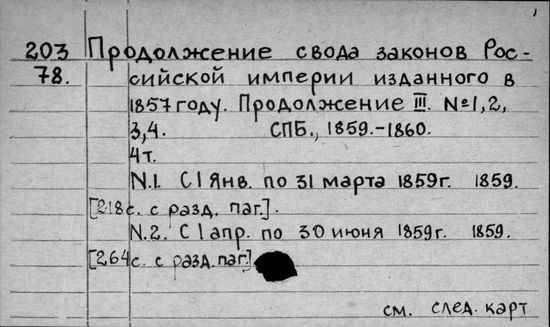 203 Продолжение свода законов Рос-
78. сийской империи изданного в
1857 году. Продолжение III. №1, 2,
3, 4. СПБ., 1859.-1860.
4т.
N.1. С 1 Янв. по 31 марта 1859г. 1859.
[218с. с разд. паг.].
N.2. С 1 апр. по 30 июня 1859г. 1859.
[264с. с разд. паг.]
см. след. карт